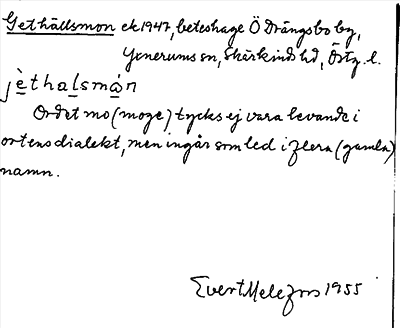 Gethällsmon ek 1947, beteshage Ö Drängsbo by,
Yxnerums sn, Skärkinds hd, Östg. l.
jèthalsmàn
Ordet mo (moge) tycks ej vara levande i
ortens dialekt, men ingår som led i flera (gamla)
namn.
Evert Melefors 1955